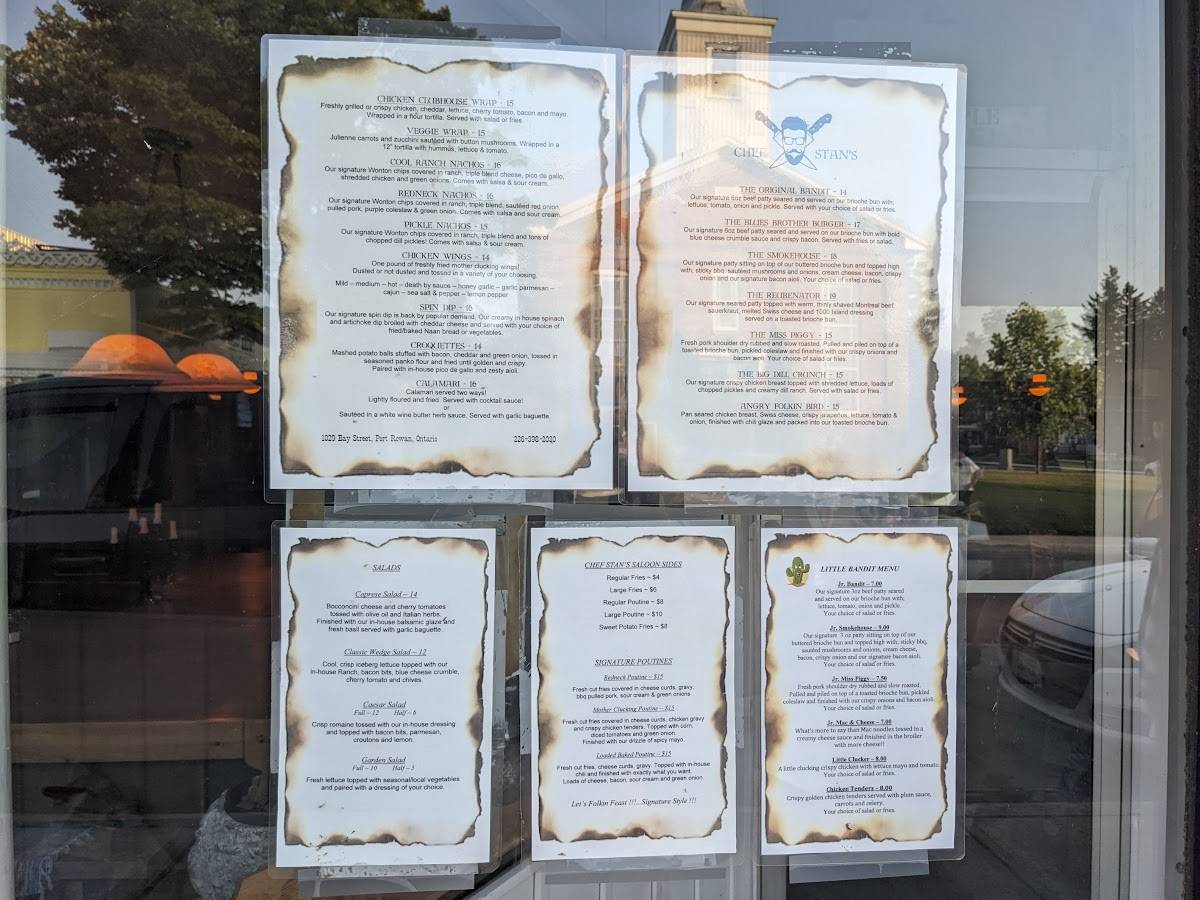 CHICKEN CLUBHOUSE WRAP - 15
Freshly grilled or crispy chicken, cheddar, lettuce, cherry tomato, bacon and mayo.
Wrapped in a flour tortilla. Served with salad or fries.
VEGGIE WRAP - 15
Julienne carrots and zucchini sautéed with button mushrooms. Wrapped in a
12" tortilla with hummus, lettuce & tomato.
COOL RANCH NACHOS - 16
Our signature Wonton chips covered in ranch, triple blend cheese, pico de gallo,
shredded chicken and green onions. Comes with salsa & sour cream.
REDNECK NACHOS - 16
Our signature Wonton chips covered in ranch, triple blend, sautéed red onion,
pulled pork, purple coleslaw & green onion. Comes with salsa and sour cream.
PICKLE NACHOS - 15
Our signature Wonton chips covered in ranch, triple blend and tons of
chopped dill pickles! Comes with salsa & sour cream.
CHICKEN WINGS - 14
One pound of freshly fried mother clucking wings!
Dusted or not dusted and tossed in a variety of your choosing.
Mild – medium – hot – death by sauce – honey garlic – garlic parmesan –
cajun – sea salt & pepper – lemon pepper
SPIN DIP - 16
Our signature spin dip is back by popular demand. Our creamy in house spinach
and artichoke dip broiled with cheddar cheese and served with your choice of
fried/baked Naan bread or vegetables.
CROQUETTES - 14
Mashed potato balls stuffed with bacon, cheddar and green onion, tossed in
seasoned panko flour and fried until golden and crispy.
Paired with in-house pico de gallo and zesty aioli.
CALAMARI - 16
Calamari served two ways!
Lightly floured and fried. Served with cocktail sauce!
or
Sautéed in a white wine butter herb sauce. Served with garlic baguette.
1029 Bay Street, Port Rowan, Ontario 226-398-2020
CHEF STAN'S
THE ORIGINAL BANDIT - 14
Our signature 6oz beef patty seared and served on our brioche bun with;
lettuce, tomato, onion and pickle. Served with your choice of salad or fries.
THE BLUES BROTHER BURGER - 17
Our signature 6oz beef patty seared and served on our brioche bun with bold
blue cheese crumble sauce and crispy bacon. Served with fries or salad.
THE SMOKEHOUSE - 18
Our signature patty sitting on top of our buttered brioche bun and topped high
with; sticky bbq, sautéed mushrooms and onions, cream cheese, bacon, crispy
onion and our signature bacon aioli. Your choice of salad or fries.
THE REUBENATOR - 19
Our signature seared patty topped with warm, thinly shaved Montreal beef,
sauerkraut, melted Swiss cheese and 1000 Island dressing
served on a toasted brioche bun.
THE MISS PIGGY - 15
Fresh pork shoulder dry rubbed and slow roasted. Pulled and piled on top of a
toasted brioche bun, pickled coleslaw and finished with our crispy onions and
bacon aioli. Your choice of salad or fries.
THE BIG DILL CRUNCH - 15
Our signature crispy chicken breast topped with shredded lettuce, loads of
chopped pickles and creamy dill ranch. Served with salad or fries.
ANGRY FOLKIN BIRD - 15
Pan seared chicken breast, Swiss cheese, crispy jalapeños, lettuce, tomato &
onion, finished with chili glaze and packed into our toasted brioche bun.
SALADS
Caprese Salad – 14
Bocconcini cheese and cherry tomatoes
tossed with olive oil and Italian herbs.
Finished with our in-house balsamic glaze and
fresh basil served with garlic baguette.
Classic Wedge Salad – 12
Cool, crisp iceberg lettuce topped with our
in-house Ranch, bacon bits, blue cheese crumble,
cherry tomato and chives.
Caesar Salad
Full – 12 Half – 6
Crisp romaine tossed with our in-house dressing
and topped with bacon bits, parmesan,
croutons and lemon.
Garden Salad
Full – 10 Half – 5
Fresh lettuce topped with seasonal/local vegetables
and paired with a dressing of your choice.
CHEF STAN'S SALOON SIDES
Regular Fries ~ $4
Large Fries ~ $6
Regular Poutine ~ $8
Large Poutine ~ $10
Sweet Potato Fries ~ $8
SIGNATURE POUTINES
Redneck Poutine ~ $15
Fresh cut fries covered in cheese curds, gravy,
bbq pulled pork, sour cream & green onions
Mother Clucking Poutine ~ $15
Fresh cut fries covered in cheese curds, chicken gravy
and crispy chicken tenders. Topped with corn,
diced tomatoes and green onion.
Finished with our drizzle of spicy mayo.
Loaded Baked Poutine ~ $15
Fresh cut fries, cheese curds, gravy. Topped with in-house
chili and finished with exactly what you want.
Loads of cheese, bacon, sour cream and green onion.
Let's Folkin Feast !!!...Signature Style !!!
LITTLE BANDIT MENU
Jr. Bandit – 7.00
Our signature 3oz beef patty seared
and served on our brioche bun with;
lettuce, tomato, onion and pickle.
Your choice of salad or fries.
Jr. Smokehouse – 9.00
Our signature 3 oz patty sitting on top of our
buttered brioche bun and topped high with; sticky bbq,
sautéed mushrooms and onions, cream cheese,
bacon, crispy onion and our signature bacon aioli.
Your choice of salad or fries.
Jr. Miss Piggy – 7.50
Fresh pork shoulder dry rubbed and slow roasted.
Pulled and piled on top of a toasted brioche bun, pickled
coleslaw and finished with our crispy onions and bacon aioli.
Your choice of salad or fries.
Jr. Mac & Cheese – 7.00
What's more to say than Mac noodles tossed in a
creamy cheese sauce and finished in the broiler
with more cheese!!
Little Clucker – 8.00
A little clucking crispy chicken with lettuce mayo and tomato.
Your choice of salad or fries.
Chicken Tenders – 8.00
Crispy golden chicken tenders served with plum sauce,
carrots and celery.
Your choice of salad or fries.